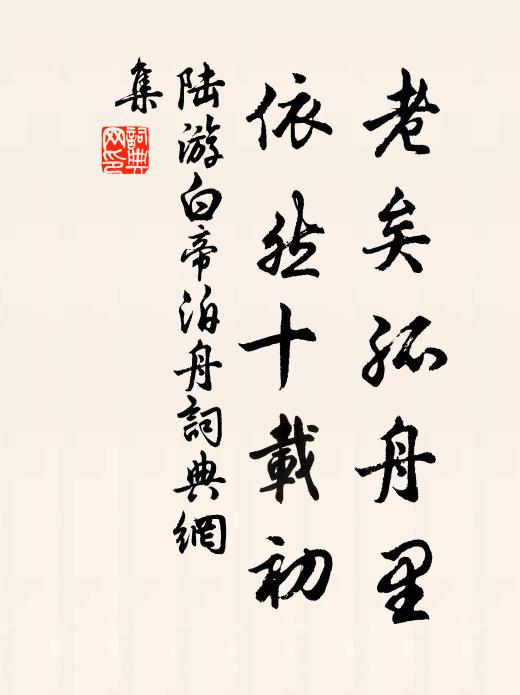 老矣孤舟里
依然十載初
陆游白帝泊舟詞典網
集
詞典
网印